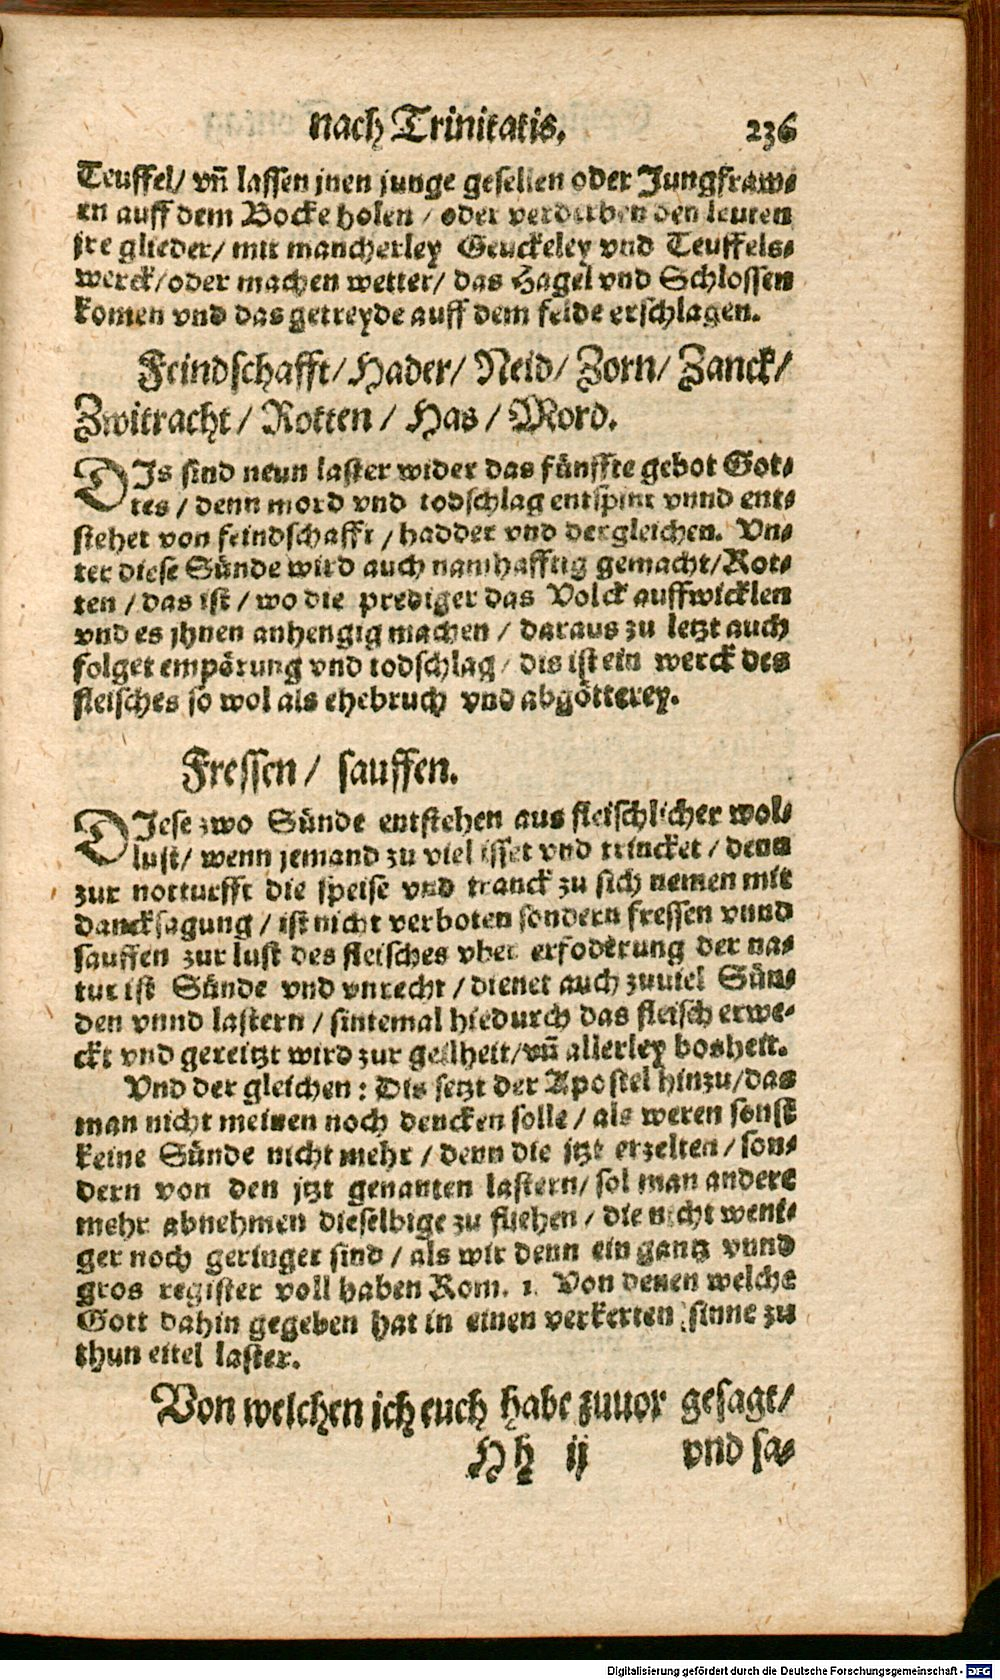 nach Trinitatis. 236
Teuffel/ vñ lassen jnen junge gesellen oder Jungfraw⸗
en auff dem Bocke holen / oder verderben den leuten
jre glieder/ mit mancherley Geuckeley vnd Teuffels⸗
werck/oder machen wetter/ das Hagel vnd Schlossen
komen vnd das getreyde auff dem felde erschlagen.
Feindschafft/ Hader/ Neid/ Zorn/ Zanck/
Zwitracht/ Rotten / Has / Mord.
DIs sind neun laster wider das fünffte gebot Got⸗
tes / denn mord vnd todschlag entspint vnnd ent⸗
stehet von feindschafft / hadder vnd dergleichen. Vn⸗
ter diese Sünde wird auch namhafftig gemacht/Rot⸗
ten / das ist / wo die prediger das Volck auffwicklen
vnd es jhnen anhengig machen / daraus zu letzt auch
folget empörung vnd todschlag / dis ist ein werck des
fleisches so wol als ehebruch vnd abgötterey.
Fressen / sauffen.
DIese zwo Sünde entstehen aus fleischlicher wol⸗
lust/ wenn jemand zu viel isset vnd trincket / denn
zur notturfft die speise vnd tranck zu sich nemen mit
dancksagung / ist nicht verboten sondern fressen vnnd
sauffen zur lust des fleisches vber erfoderung der na⸗
tur ist Sünde vnd vnrecht / dienet auch zuuiel Sün⸗
den vnnd lastern / sintemal hiedurch das fleisch erwe⸗
ckt vnd gereitzt wird zur geilheit/vñ allerley bosheit.
Vnd der gleichen : Dis setzt der Apostel hinzu/das
man nicht meinen noch dencken solle / als weren sonst
keine Sünde nicht mehr / denn die jtzt erzelten / son⸗
dern von den jtzt genanten lastern/ sol man andere
mehr abnehmen dieselbige zu fliehen / die nicht weni⸗
ger noch geringer sind / als wir denn ein gantz vnnd
gros register voll haben Rom. 1. Von denen welche
Gott dahin gegeben hat in einen verkerten sinne zu
thun eitel laster.
Von welchen ich euch habe zuuor gesagt/
Hh ij vnd sa⸗
Digitalisierung gefördert durch die Deutsche Forschungsgemeinschaft - DFG